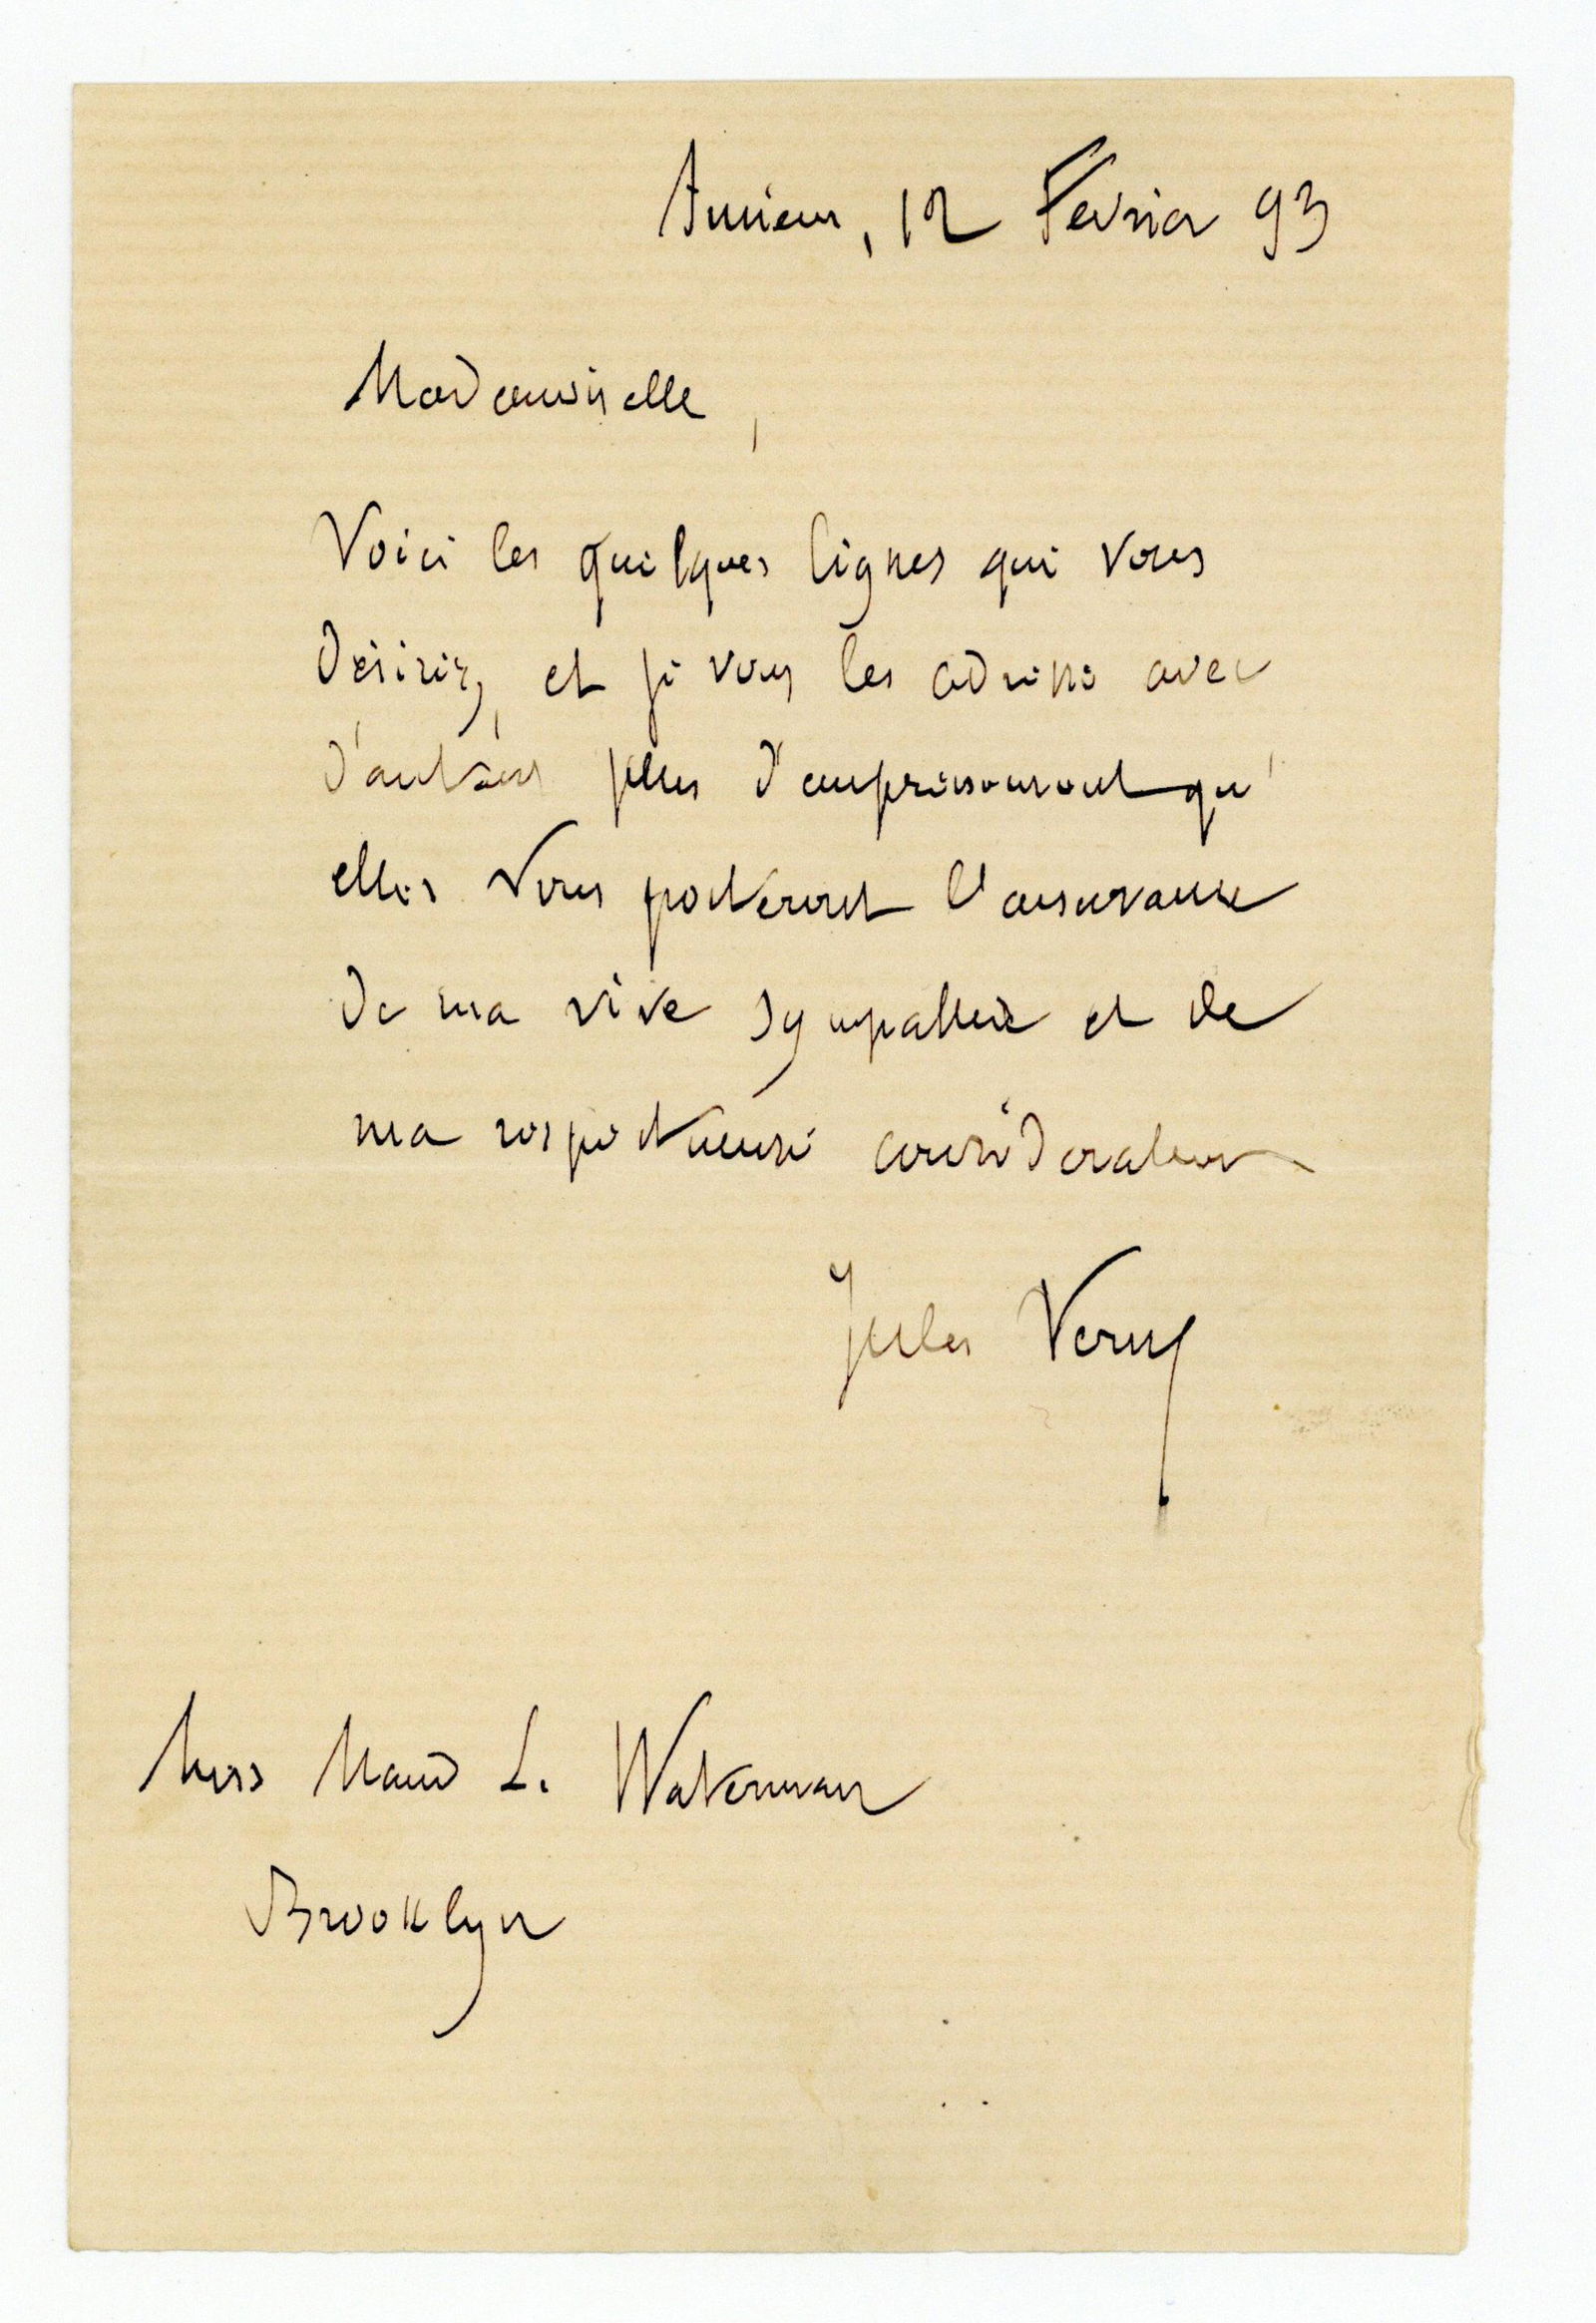 Amiens, 12 Février 93
Mademoiselle,
Voici les quelques lignes que vous
désirez, et je vous les adresse avec
d'autant plus d'empressement qu'
elles vous porteront l'assurance
de ma vive sympathie et de
ma respectueuse considération
Jules Verne
Miss Maud L. Waterman
Brooklyn